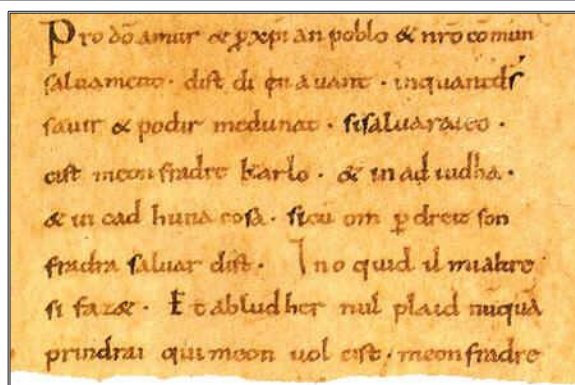 Pro dō amur & p xpīan poblo & nrō comun
saluament. dist di en auant. inquantdſ
sauir & podir medunat. sisaluaraieo.
cist meon fradre karlo. & in ad iudha.
& in cad huna cosa. sicu om p dreit son
fradra saluar dist. Ino quid il mialtre
si faz&. Et abludher nul plaid nūquā
prindrai quimeon uol cist. meonfradre